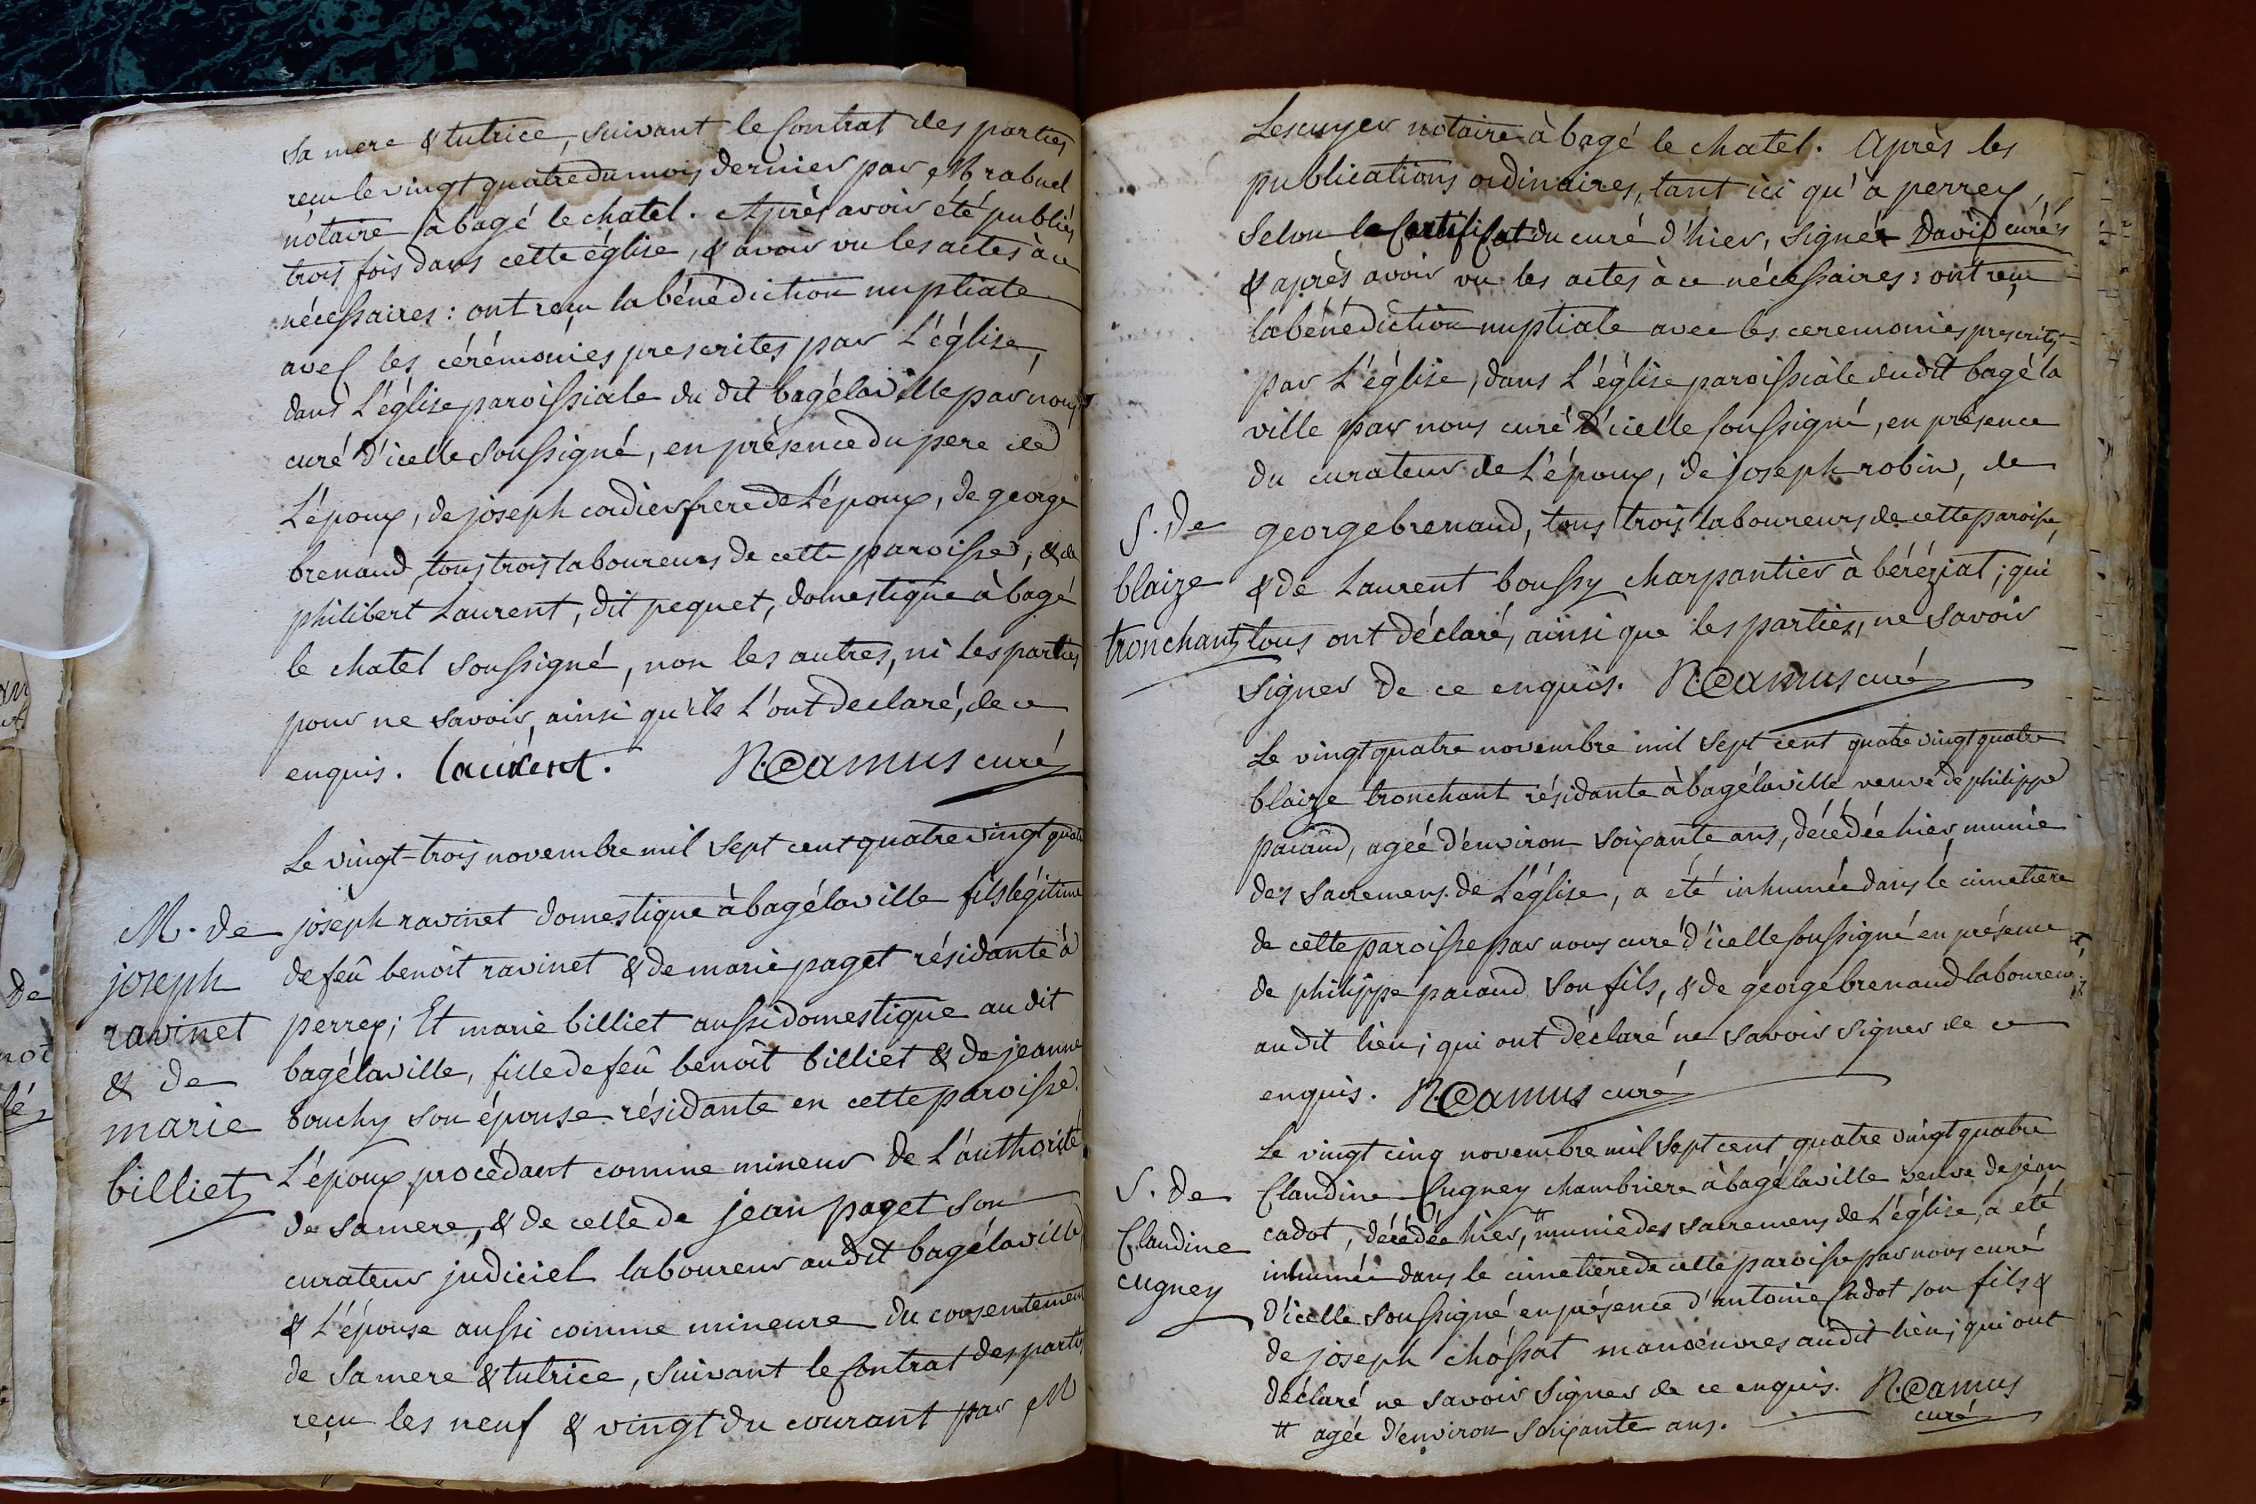 sa mere & tutrice, suivant le Contrat des parties
reçu le vingt quatre du mois dernier par M rabuel
notaire à bagé le chatel. Après avoir été publiés
trois fois dans cette église, & avoir vu les actes à ce
nécessaires: ont reçu la bénédiction nuptiale
avec les cérémonies prescrites par L'église,
dans L'église paroissiale du dit bagé la ville par nous
curé d'icelle soussigné, en présence du pere de
L'époux, de joseph cordier frere de L'époux, de george
brenaud, tous trois laboureurs de cette paroisse, & de
philibert Laurent, dit pequet, domestique à bagé
le chatel soussigné, non les autres, ni les parties
pour ne savoir, ainsi qu'ils L'ont declaré, de ce
enquis. laurent. N. Camus curé
Le vingt-trois novembre mil sept cent quatre vingt quatre
M. de
joseph
ravinet
& de
marie
billiet
joseph ravinet domestique à bagé la ville fils légitime
de feû benoît ravinet & de marie paget résidante à
perrex; Et marie billiet aussi domestique au dit
bagé la ville, fille de feû benoît billiet & de jeanne
bouchy son épouse résidante en cette paroisse.
L'époux procédant comme mineur de L'authorité
de sa mere, & de celle de jean paget son
curateur judiciel laboureur au dit bagé la ville,
& L'épouse aussi comme mineure du consentement
de sa mere & tutrice, suivant le Contrat des parties
reçu les neuf & vingt du courant par M
Lescuyer notaire à bagé le chatel. Après les
publications ordinaires, tant ici qu'à perrex,
Selon le Certificat du curé d'hier, signé David curé,
& après avoir vu les actes à ce nécessaires: ont reçu
la bénédiction nuptiale avec les ceremonies prescrites
par L'église, dans L'église paroissiale du dit bagé la
ville par nous curé d'icelle soussigné, en présence
du curateur de L'époux, de joseph robin, de
george brenaud, tous trois laboureurs de cette paroisse,
& de Laurent boussy charpantier à béréziat; qui
tous ont déclaré, ainsi que les parties, ne savoir
signer de ce enquis. N. Camus curé
S. de
blaize
tronchant
Le vingt quatre novembre mil sept cent quatre vingt quatre
blaize tronchant résidante à bagé la ville veuve de philippe
pacaud, agée d'environ soixante ans, décédée hier, munie
des sacremens de L'église, a été inhumée dans le cimetière
de cette paroisse par nous curé d'icelle soussigné en présence
de philippe pacaud son fils, & de george brenaud laboureur
au dit lieu; qui ont déclaré ne savoir signer de ce
enquis. N. Camus curé
S. de
Claudine
cugney
Le vingt cinq novembre mil sept cent quatre vingt quatre
Claudine Cugney chambriere à bagé la ville veuve de jéan
cadot, décédée hier, # munie des sacremens de L'église, a été
inhumée dans le cimetière de cette paroisse par nous curé
d'icelle soussigné en présence d'antoine Cadot son fils &
de joseph chossat manoeuvres au dit lieu; qui ont
déclaré ne savoir signer de ce enquis. N. Camus
curé
# agée d'environ soixante ans.